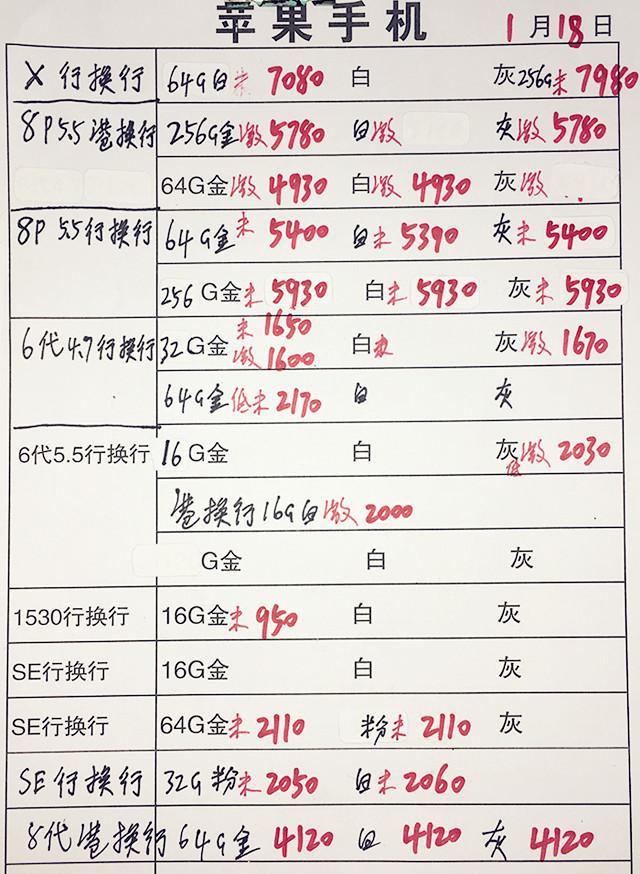 苹果手机 1月18日
X 行换行 64G白未 7080 白 灰256G未 7980
8P5.5港换行 256G金激5780 白激 灰激5780
64G金激4930 白激4930 灰激
8P 5.5行换行 64G金未5400 白未5390 灰未5400
256G金未5930 白未5930 灰未5930
6代4.7行换行 32G金未1650 激1600 白未 灰激1670
64G金低未2170 白 灰
6代5.5行换行 16G金 白 灰低激2030
港换行16G白激2000
G金 白 灰
1530行换行 16G金未950 白 灰
SE行换行 16G金 白 灰
SE行换行 64G金未2110 粉未2110 灰
SE行换行 32G粉未2050 白未2060
8代港换行 64G金 4120 白 4120 灰 4120